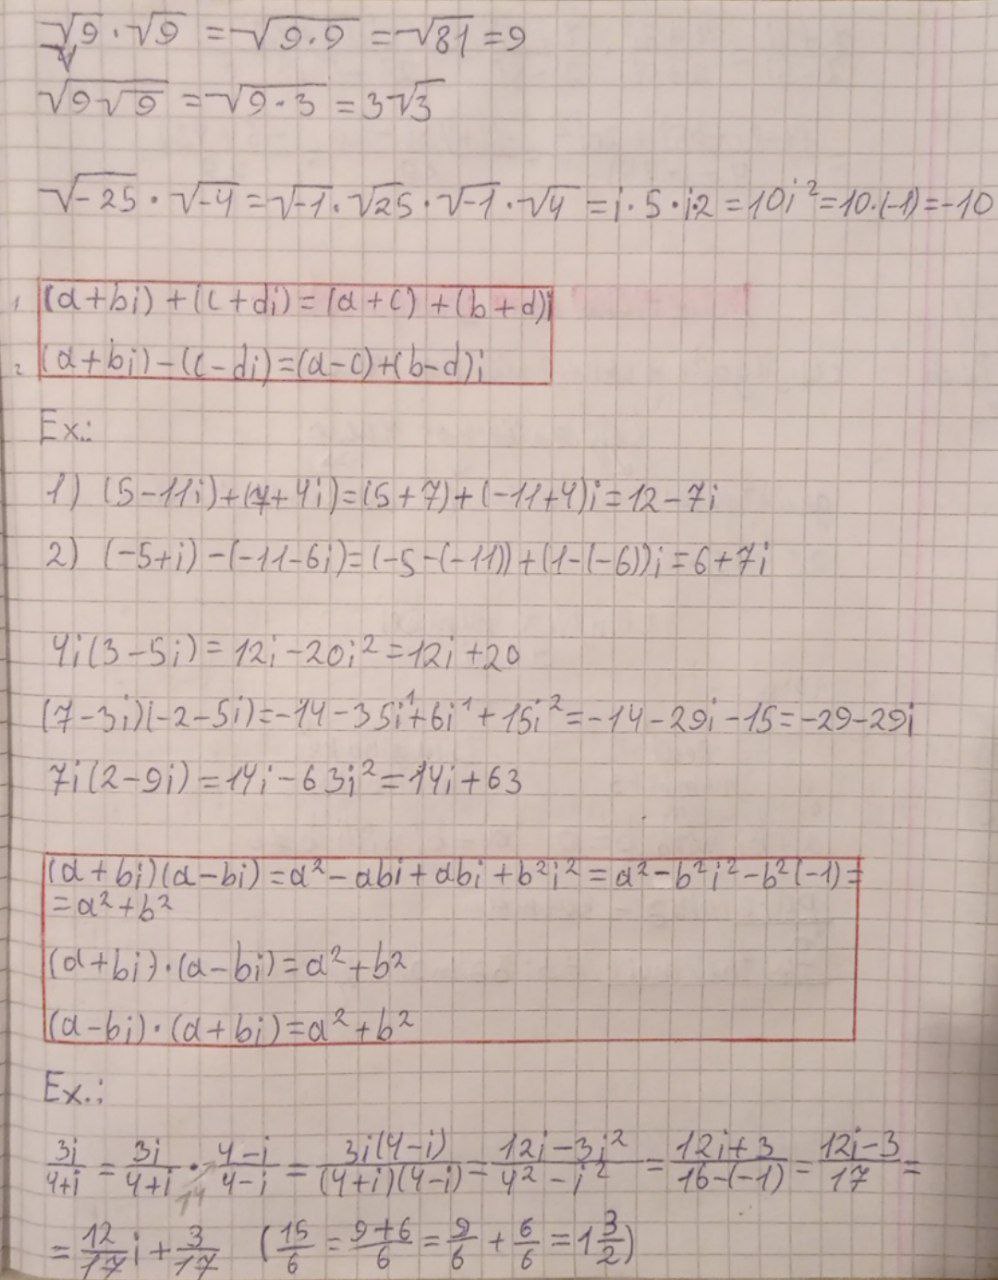 √9 · √9 = √9·9 = √81 = 9
√9√9 = √9·3 = 3√3
√-25 · √-4 = √-1 · √25 · √-1 · √4 = i · 5 · i·2 = 10i² = 10·(-1) = -10
1. (a+bi) + (c+di) = (a+c) + (b+d)i
2. (a+bi) - (c-di) = (a-c) + (b-d)i
Ex.:
1) (5-11i)+(7+4i)=(5+7)+(-11+4)i=12-7i
2) (-5+i)-(-11-6i)=(-5-(-11))+(1-(-6))i=6+7i
4i(3-5i)=12i-20i²=12i+20
(7-3i)(-2-5i)=-14-35i¹+6i¹+15i²=-14-29i-15=-29-29i
7i(2-9i)=14i-63i²=14i+63
(a+bi)(a-bi)=a²-abi+abi+b²i²=a²-b²i²-b²(-1)=
=a²+b²
(a+bi)·(a-bi)=a²+b²
(a-bi)·(a+bi)=a²+b²
Ex.:
3i/4+i = 3i/4+i · 4-i/4-i = 3i(4-i)/(4+i)(4-i) = 12i-3i²/4²-i² = 12i+3/16-(-1) = 12i-3/17 =
= 12/17 i + 3/17 (15/6 = 9+6/6 = 9/6 + 6/6 = 1 3/2)